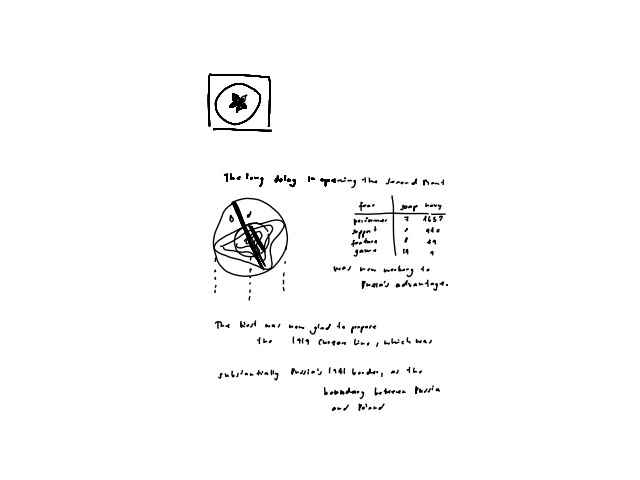 The long delay in opening the second front
b d
four soap navy
performer 7 4657
support 940
feature 8 49
game 14 9
was now working to
Russia's advantage.
The West was now glad to propose
the 1919 Curzon line, which was
substantially Russia's 1941 border, as the
boundary between Russia
and Poland